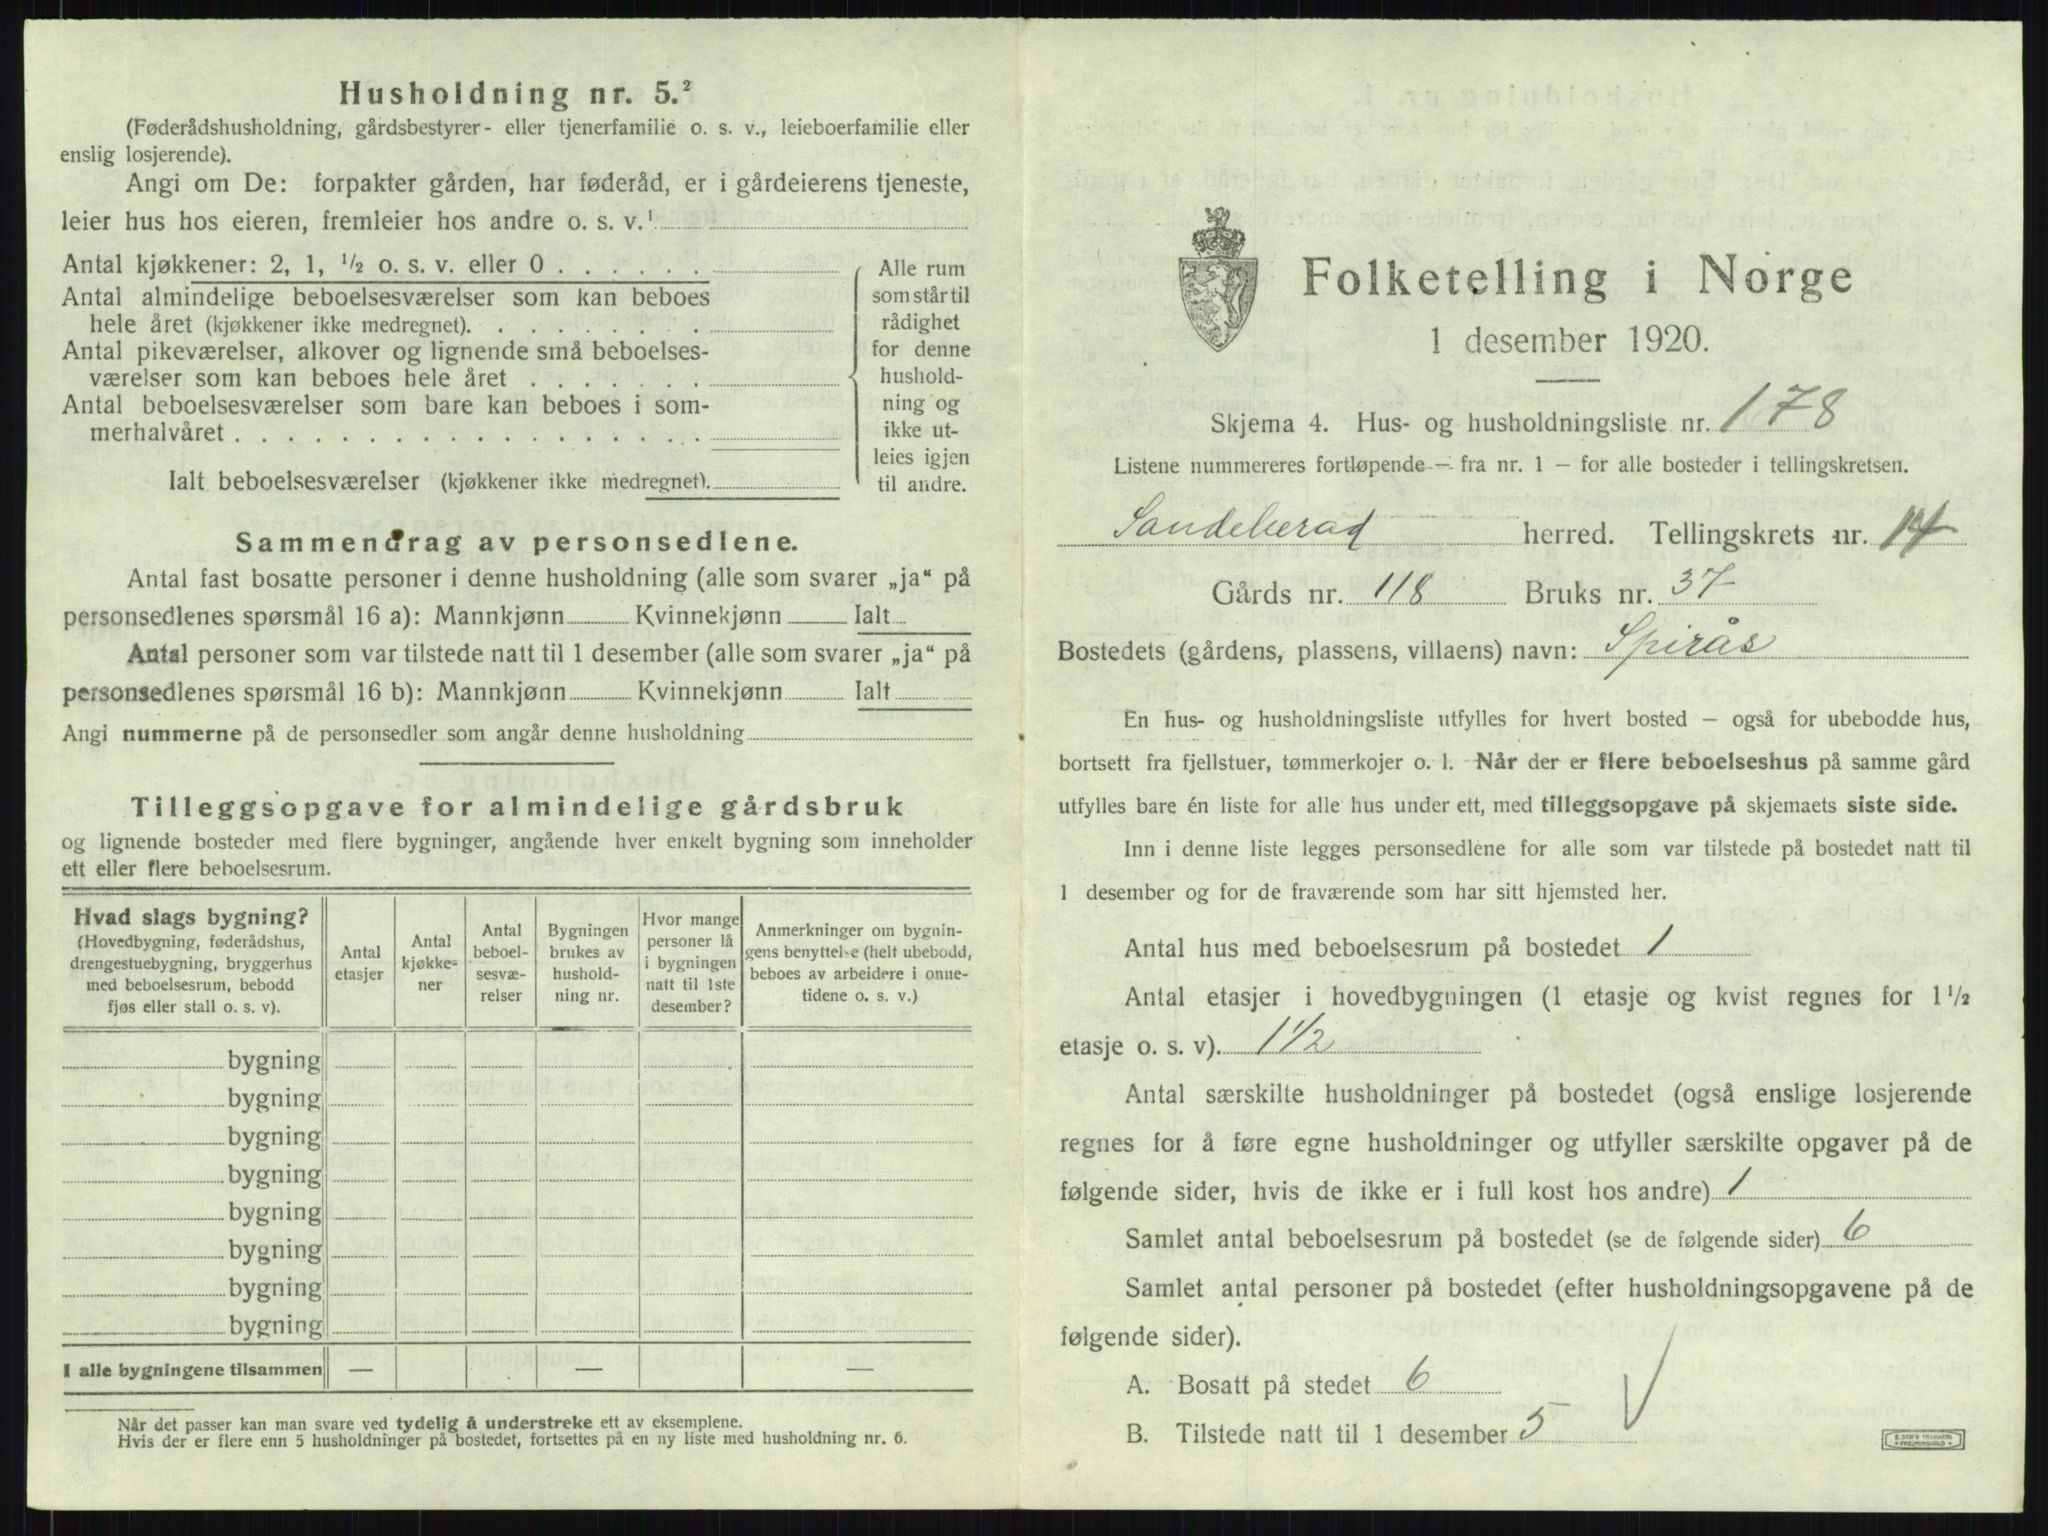 Husholdning nr. 5.²
(Føderådshusholdning, gårdsbestyrer- eller tjenerfamilie o. s. v., leieboerfamilie eller
enslig losjerende).
Angi om De: forpakter gården, har føderåd, er i gårdeierens tjeneste,
leier hus hos eieren, fremleier hos andre o. s. v.¹
Antal kjøkkener: 2, 1, ½ o. s. v. eller 0 . . . . . .
Antal almindelige beboelsesværelser som kan beboes
hele året (kjøkkener ikke medregnet). . . . . . . . .
Antal pikeværelser, alkover og lignende små beboelses-
værelser som kan beboes hele året . . . . . . .
Antal beboelsesværelser som bare kan beboes i som-
merhalvåret . . . . . . . . . . . . . . . . . .
Ialt beboelsesværelser (kjøkkener ikke medregnet).
Alle rum
som står til
rådighet
for denne
hushold-
ning og
ikke ut-
leies igjen
til andre.
Sammendrag av personsedlene.
Antal fast bosatte personer i denne husholdning (alle som svarer „ja“ på
personsedlenes spørsmål 16 a): Mannkjønn Kvinnekjønn Ialt
Antal personer som var tilstede natt til 1 desember (alle som svarer „ja“ på
personsedlenes spørsmål 16 b): Mannkjønn Kvinnekjønn Ialt
Angi nummerne på de personsedler som angår denne husholdning
Tilleggsopgave for almindelige gårdsbruk
og lignende bosteder med flere bygninger, angående hver enkelt bygning som inneholder
ett eller flere beboelsesrum.
Hvad slags bygning?
(Hovedbygning, føderådshus,
drengestuebygning, bryggerhus
med beboelsesrum, bebodd
fjøs eller stall o. s. v).
Antal
etasjer
Antal
kjøkke-
ner
Antal
beboel-
sesvæ-
relser
Bygningen
brukes av
hushold-
ning nr.
Hvor mange
personer lå
i bygningen
natt til 1ste
desember?
Anmerkninger om bygnin-
gens benyttelse (helt ubebodd,
beboes av arbeidere i onne-
tidene o. s. v.)
bygning
bygning
bygning
bygning
bygning
bygning
bygning
bygning
I alle bygningene tilsammen — — —
Når det passer kan man svare ved tydelig å understreke ett av eksemplene.
Hvis der er flere enn 5 husholdninger på bostedet, fortsettes på en ny liste med husholdning nr. 6.
Folketelling i Norge
1 desember 1920.
Skjema 4. Hus- og husholdningsliste nr. 178
Listene nummereres fortløpende – fra nr. 1 – for alle bosteder i tellingskretsen.
Sandeherad herred. Tellingskrets nr. 14
Gårds nr. 118 Bruks nr. 37
Bostedets (gårdens, plassens, villaens) navn: Spirås
En hus- og husholdningsliste utfylles for hvert bosted – også for ubebodde hus,
bortsett fra fjellstuer, tømmerkojer o. l. Når der er flere beboelseshus på samme gård
utfylles bare én liste for alle hus under ett, med tilleggsopgave på skjemaets siste side.
Inn i denne liste legges personsedlene for alle som var tilstede på bostedet natt til
1 desember og for de fraværende som har sitt hjemsted her.
Antal hus med beboelsesrum på bostedet 1
Antal etasjer i hovedbygningen (1 etasje og kvist regnes for 1½
etasje o. s. v). 1½
Antal særskilte husholdninger på bostedet (også enslige losjerende
regnes for å føre egne husholdninger og utfyller særskilte opgaver på de
følgende sider, hvis de ikke er i full kost hos andre) 1
Samlet antal beboelsesrum på bostedet (se de følgende sider) 6
Samlet antal personer på bostedet (efter husholdningsopgavene på de
følgende sider).
A. Bosatt på stedet 6
B. Tilstede natt til 1 desember 5